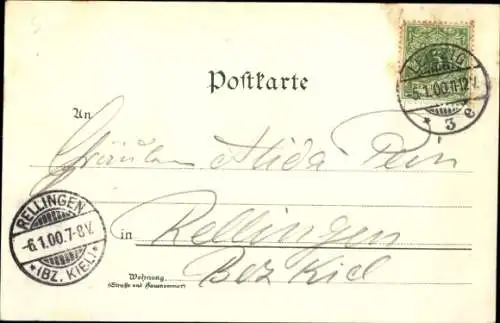 LEIPZIG
5.1.00.11-12V.
* 3 e
Postkarte
An
Fräulein Alida Pein
RELLINGEN
-6.1.00.7-8V.
*(BZ. KIEL)*
in Rellingen
Bez Kiel
Wohnung
(Straße und Hausnummer)